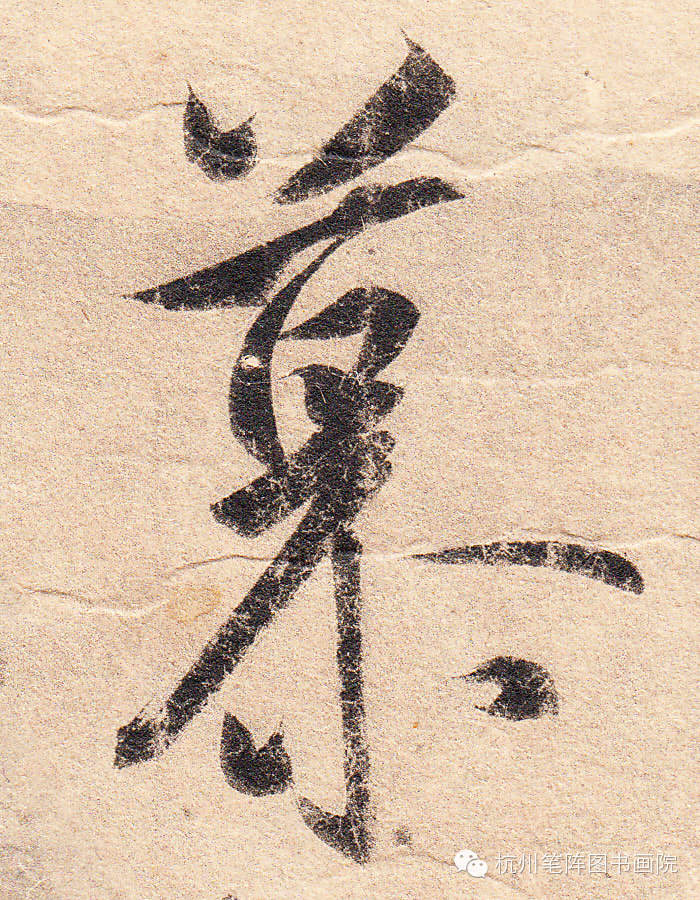 慕
杭州笔阵图书画院